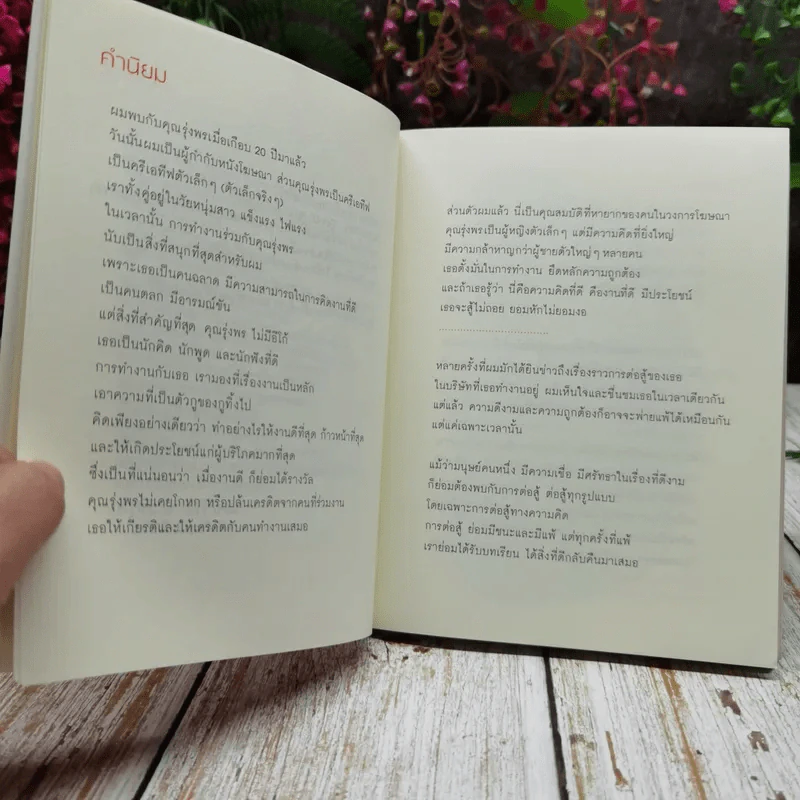 คำนิยม
ผมพบกับคุณรุ่งพรเมื่อเกือบ 20 ปีมาแล้ว
วันนั้นผมเป็นผู้กำกับหนังโฆษณา ส่วนคุณรุ่งพรเป็นครีเอทีฟ
เป็นครีเอทีฟตัวเล็กๆ (ตัวเล็กจริงๆ)
เราทั้งคู่อยู่ในวัยหนุ่มสาว แข็งแรง ไฟแรง
ในเวลานั้น การทำงานร่วมกับคุณรุ่งพร
นับเป็นสิ่งที่สนุกที่สุดสำหรับผม
เพราะเธอเป็นคนฉลาด มีความสามารถในการคิดงานที่ดี
เป็นคนตลก มีอารมณ์ขัน
แต่สิ่งที่สำคัญที่สุด คุณรุ่งพร ไม่มีอีโก้
เธอเป็นนักคิด นักพูด และนักฟังที่ดี
การทำงานกับเธอ เรามองที่เรื่องงานเป็นหลัก
เอาความที่เป็นตัวกูของกูทิ้งไป
คิดเพียงอย่างเดียวว่า ทำอย่างไรให้งานดีที่สุด ก้าวหน้าที่สุด
และให้เกิดประโยชน์แก่ผู้บริโภคมากที่สุด
ซึ่งเป็นที่แน่นอนว่า เมื่องานดี ก็ย่อมได้รางวัล
คุณรุ่งพรไม่เคยโกหก หรือปล้นเครดิตจากคนที่ร่วมงาน
เธอให้เกียรติและให้เครดิตกับคนทำงานเสมอ
ส่วนตัวผมแล้ว นี่เป็นคุณสมบัติที่หายากของคนในวงการโฆษณา
คุณรุ่งพรเป็นผู้หญิงตัวเล็กๆ แต่มีความคิดที่ยิ่งใหญ่
มีความกล้าหาญกว่าผู้ชายตัวใหญ่ๆ หลายคน
เธอตั้งมั่นในการทำงาน ยึดหลักความถูกต้อง
และถ้าเธอรู้ว่า นี่คือความคิดที่ดี คืองานที่ดี มีประโยชน์
เธอจะสู้ไม่ถอย ยอมหักไม่ยอมงอ
..............................
หลายครั้งที่ผมมักได้ยินข่าวถึงเรื่องราวการต่อสู้ของเธอ
ในบริษัทที่เธอทำงานอยู่ ผมเห็นใจและชื่นชมเธอในเวลาเดียวกัน
แต่แล้ว ความดีงามและความถูกต้องก็อาจจะพ่ายแพ้ได้เหมือนกัน
แต่แค่เฉพาะเวลานั้น
แม้ว่ามนุษย์คนหนึ่ง มีความเชื่อ มีศรัทธาในเรื่องที่ดีงาม
ก็ย่อมต้องพบกับการต่อสู้ ต่อสู้ทุกรูปแบบ
โดยเฉพาะการต่อสู้ทางความคิด
การต่อสู้ ย่อมมีชนะและมีแพ้ แต่ทุกครั้งที่แพ้
เราย่อมได้รับบทเรียน ได้สิ่งที่ดีกลับคืนมาเสมอ